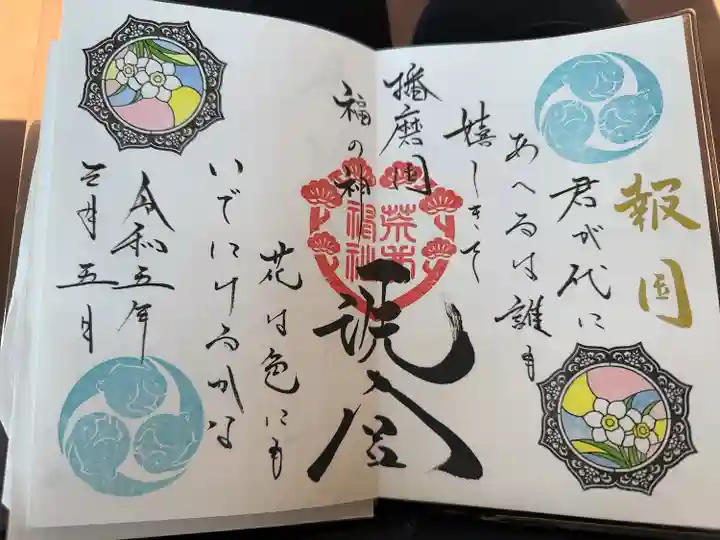 報国
君が代に
あへるは誰も
嬉しきを
播磨国
福の神
花は色にも
いでにけるかな
令和五年
三月五日